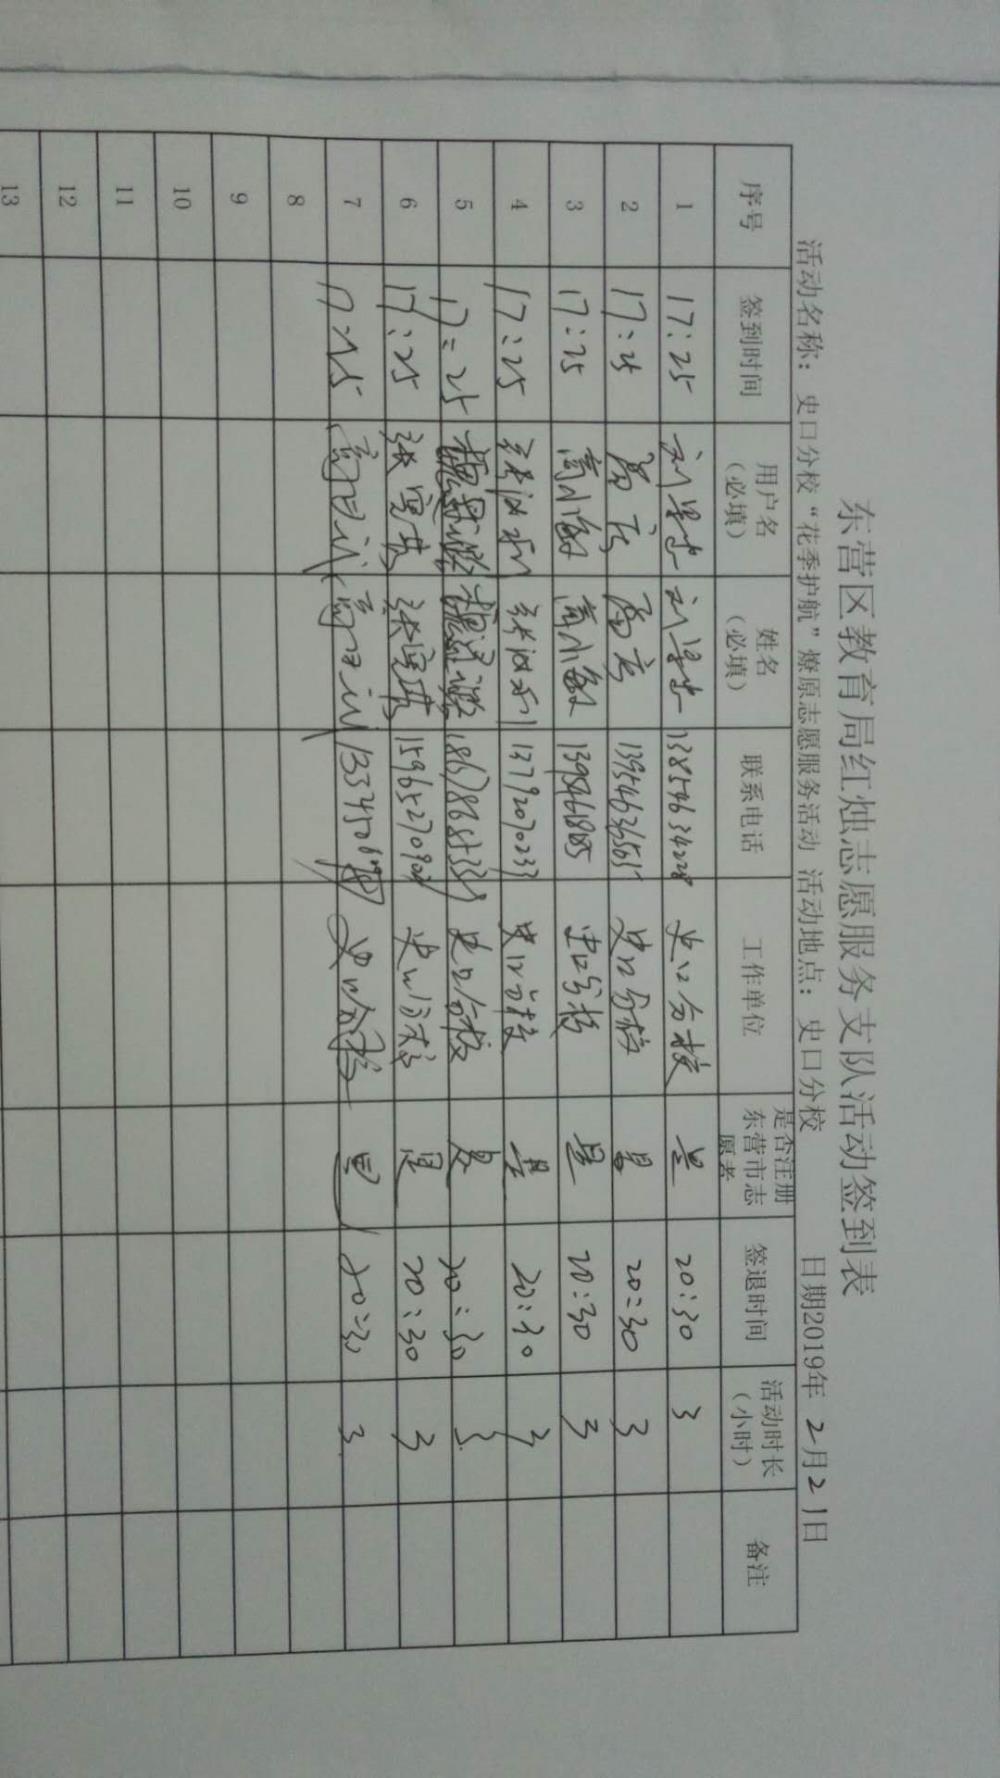 东营区教育局红烛志愿服务支队活动签到表
活动名称：史口分校“花季护航”燎原志愿服务活动 活动地点：史口分校 日期2019年2月21日
序号 签到时间 用户名（必填） 姓名（必填） 联系电话 工作单位 是否注册东营市志愿者 签退时间 活动时长（小时） 备注
1 17:25 13854634228 史口分校 是 20:30 3
2 17:25 13954636565 史口分校 是 20:30 3
3 17:25 高小敏 高小敏 史口分校 是 20:30 3
4 17:25 13792070233 史口分校 是 20:30 3
5 17:25 史口分校 是 20:30 3
6 17:25 张宝芸 张宝芸 史口分校 是 20:30 3
7 17:25 史口分校 是 20:30 3
8
9
10
11
12
13